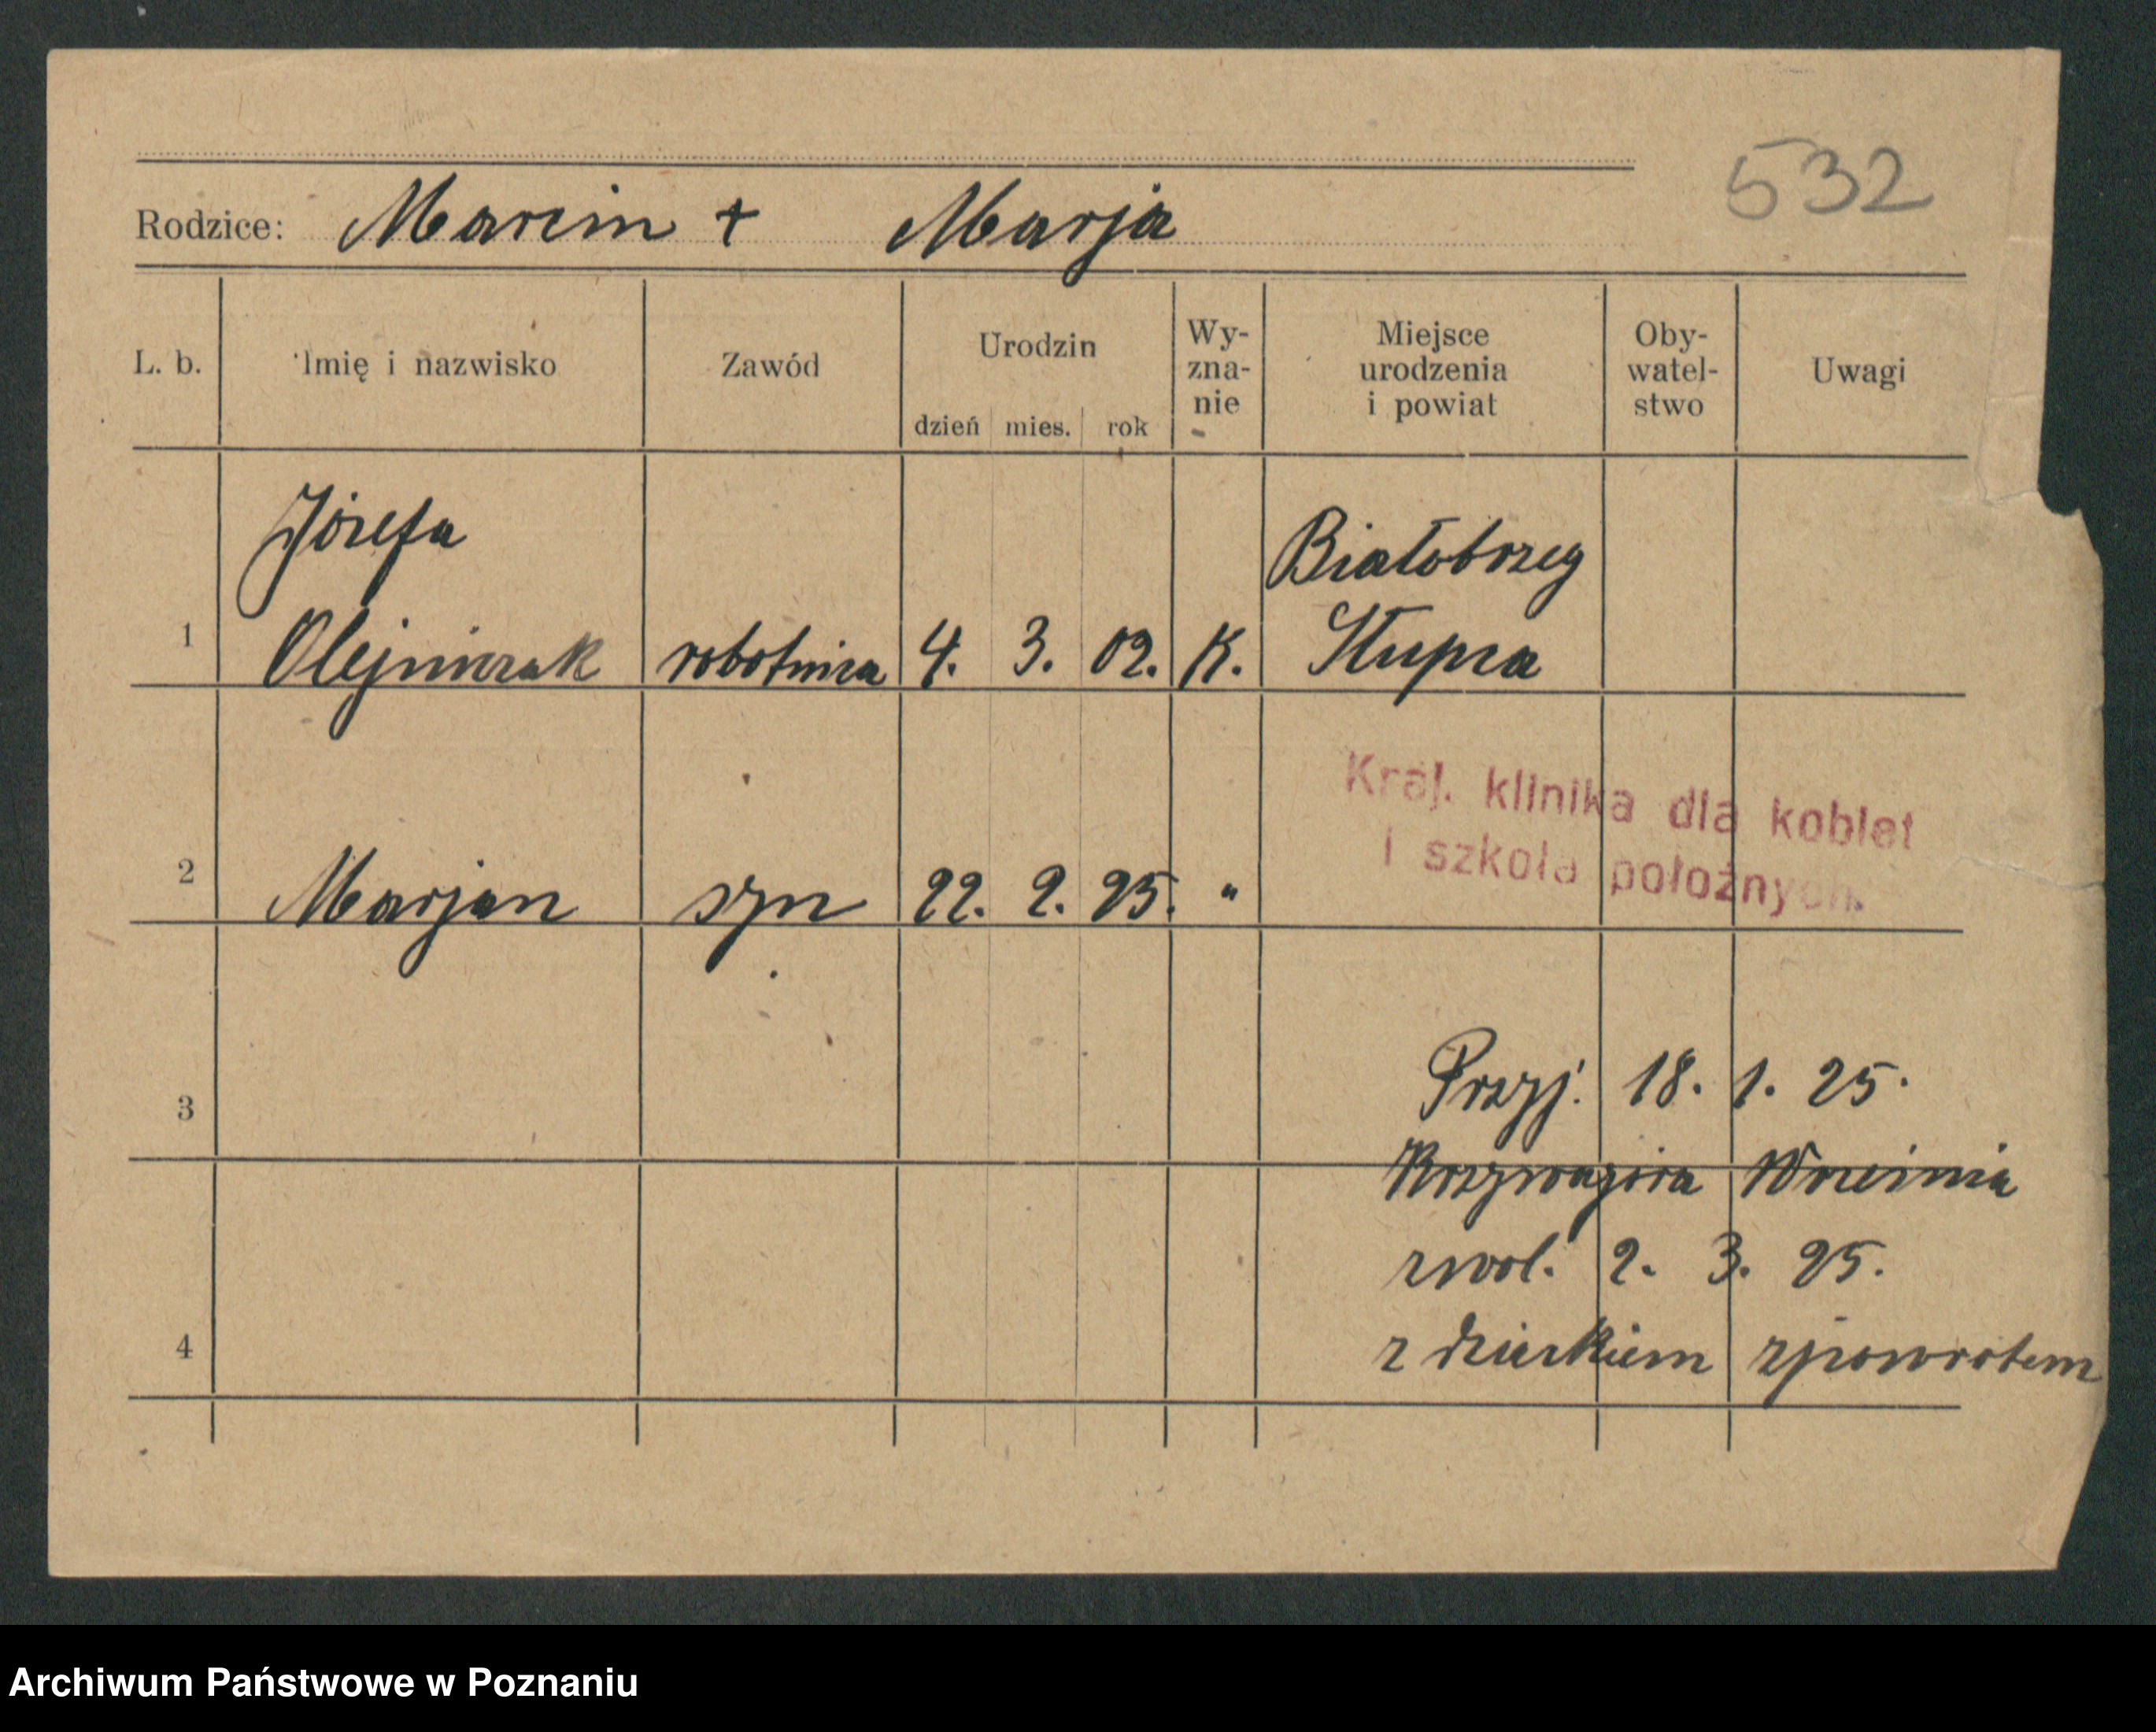 532
Rodzice: Marcin + Marja
L. b. Imię i nazwisko Zawód Urodzin dzień mies. rok Wy-znanie Miejsce urodzenia i powiat Oby-watel-stwo Uwagi
Józefa Białobrzeg
1 Olejniczak robotnica 4. 3. 02. K. Słupca
Kraj. klinika dla kobiet
i szkoła położnych.
2 Marjan syn 22. 2. 25. "
3 Przyj. 18. 1. 25.
Września
zwol. 2. 3. 25.
4 z dzieckiem zpowrotem
Archiwum Państwowe w Poznaniu